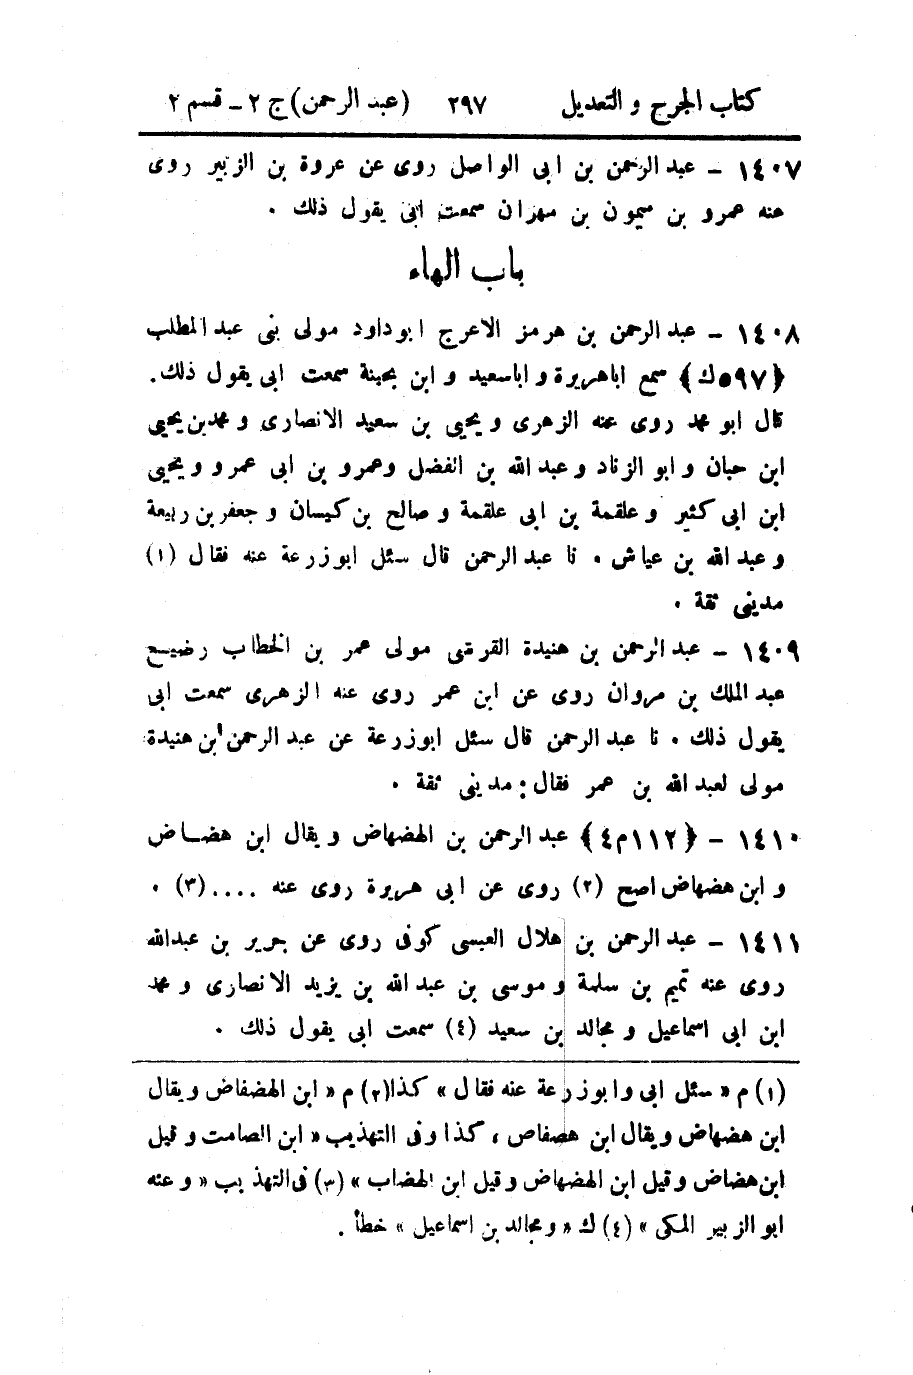 كتاب الجرح و التعديل ٢٩٧ (عبد الرحمن) ج ٢ – قسم ٢
١٤٠٧ – عبد الرحمن بن ابى الواصل روى عن عروة بن الزبير روى
عنه عمرو بن ميمون بن مهران سمعت ابى يقول ذلك .
باب الهاء
١٤٠٨ – عبد الرحمن بن هرمز الاعرج ابوداود مولى بنى عبد المطلب
﴿٥٩٧ك﴾ سمع اباهريرة و اباسعيد و ابن بحينة سمعت ابى يقول ذلك .
قال ابو محمد روى عنه الزهرى و يحيى بن سعيد الانصارى و محمد بن يحيى
ابن حبان و ابو الزناد و عبد الله بن الفضل وعمرو بن ابى عمرو و يحيى
ابن ابى كثير و علقمة بن ابى علقمة و صالح بن كيسان و جعفر بن ربيعة
و عبد الله بن عياش . نا عبد الرحمن قال سئل ابوزرعة عنه فقال (١)
مدينى ثقة .
١٤٠٩ – عبد الرحمن بن هنيدة القرشى مولى عمر بن الخطاب رضيع
عبد الملك بن مروان روى عن ابن عمر روى عنه الزهرى سمعت ابى
يقول ذلك . نا عبد الرحمن قال سئل ابوزرعة عن عبد الرحمن ابن هنيدة
مولى لعبد الله بن عمر فقال : مدينى ثقة .
١٤١٠ – ﴿١١٢م٤﴾ عبد الرحمن بن الهضهاض و يقال ابن هضاض
و ابن هضهاض اصح (٢) روى عن ابى هريرة روى عنه .... (٣) .
١٤١١ – عبد الرحمن بن هلال العبسى كوفى روى عن جرير بن عبدالله
روى عنه تميم بن سلمة و موسى بن عبد الله بن يزيد الانصارى و محمد
ابن ابى اسماعيل و مجالد بن سعيد (٤) سمعت ابى يقول ذلك .
(١) م « سئل ابى وابوزرعة عنه فقال » كذا (٢) م « ابن الهضفاض ويقال
ابن هضهاض ويقال ابن هصفاص ، كذا وفى التهذيب « ابن الصامت و قيل
ابن هضاض و قيل ابن الهضهاض وقيل ابن الهضاب » (٣) فى التهذيب « و عنه
ابو الزبير المكى » (٤) ك « و مجالد بن اسماعيل » خطأ .